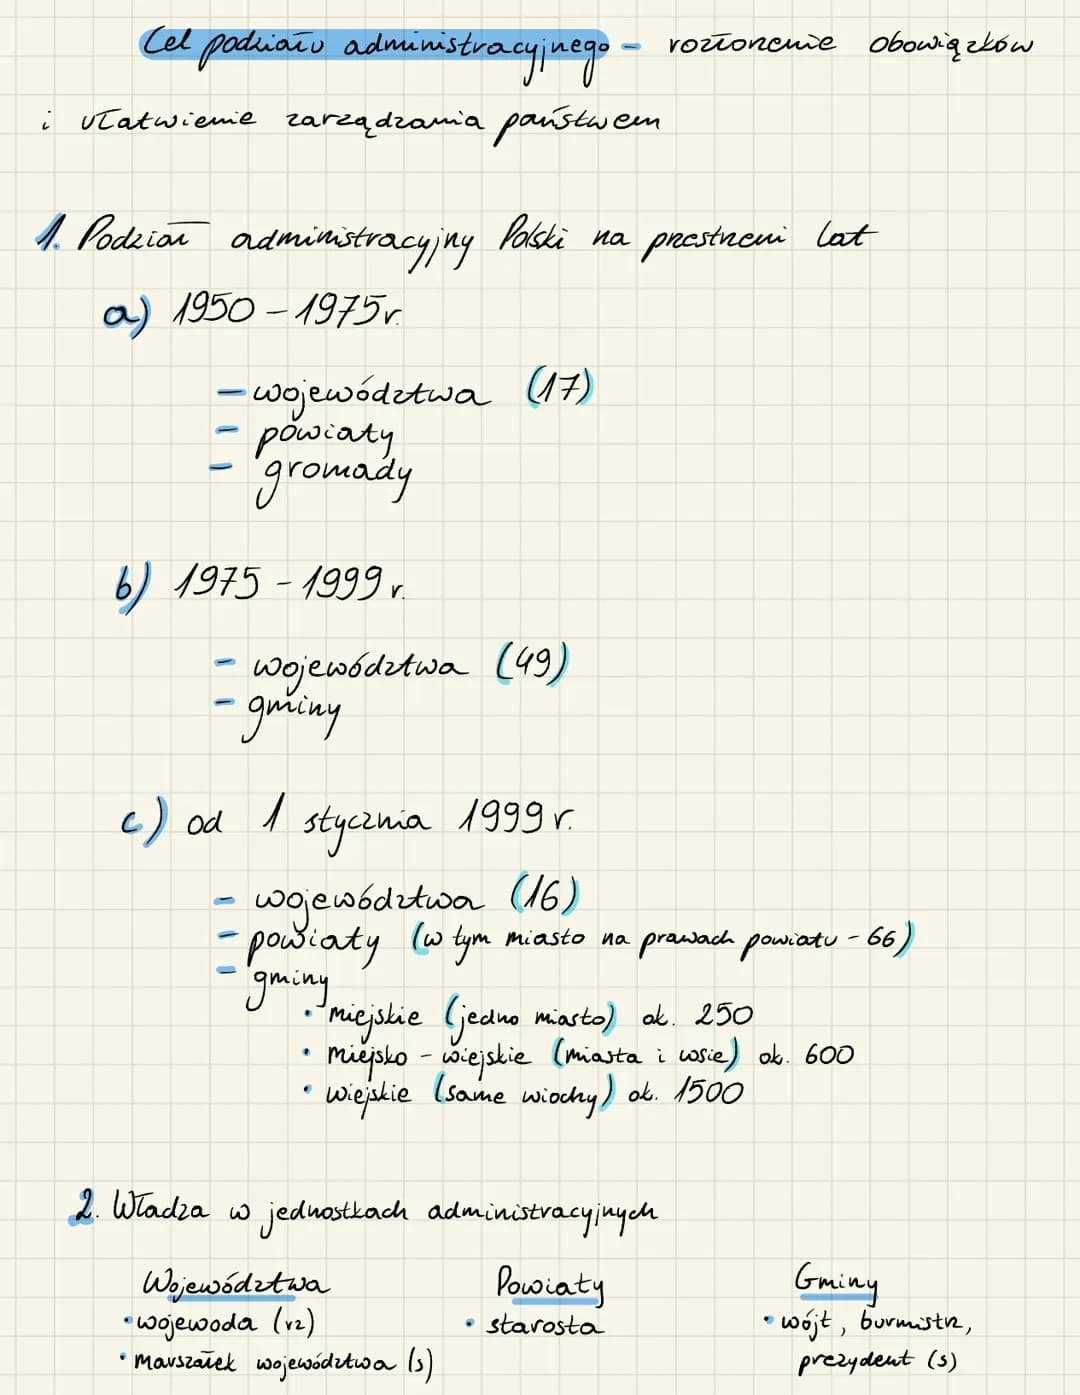 Cel podziału administracyjnego - rozłożenie obowiązków
i ułatwienie zarządzania państwem
1. Podział administracyjny Polski na przestrzeni lat
a) 1950 - 1975r.
- województwa (17)
- powiaty
- gromady
b) 1975 - 1999 r.
- województwa (49)
- gminy
c) od 1 stycznia 1999 r.
- województwa (16)
- powiaty (w tym miasto na prawach powiatu - 66)
- gminy
• miejskie (jedno miasto) ok. 250
• miejsko - wiejskie (miasta i wsie) ok. 600
• wiejskie (same wiochy) ok. 1500
2. Władza w jednostkach administracyjnych
Województwa Powiaty Gminy
• wojewoda (rz) • starosta • wójt, burmistrz,
• marszałek województwa (s) prezydent (s)